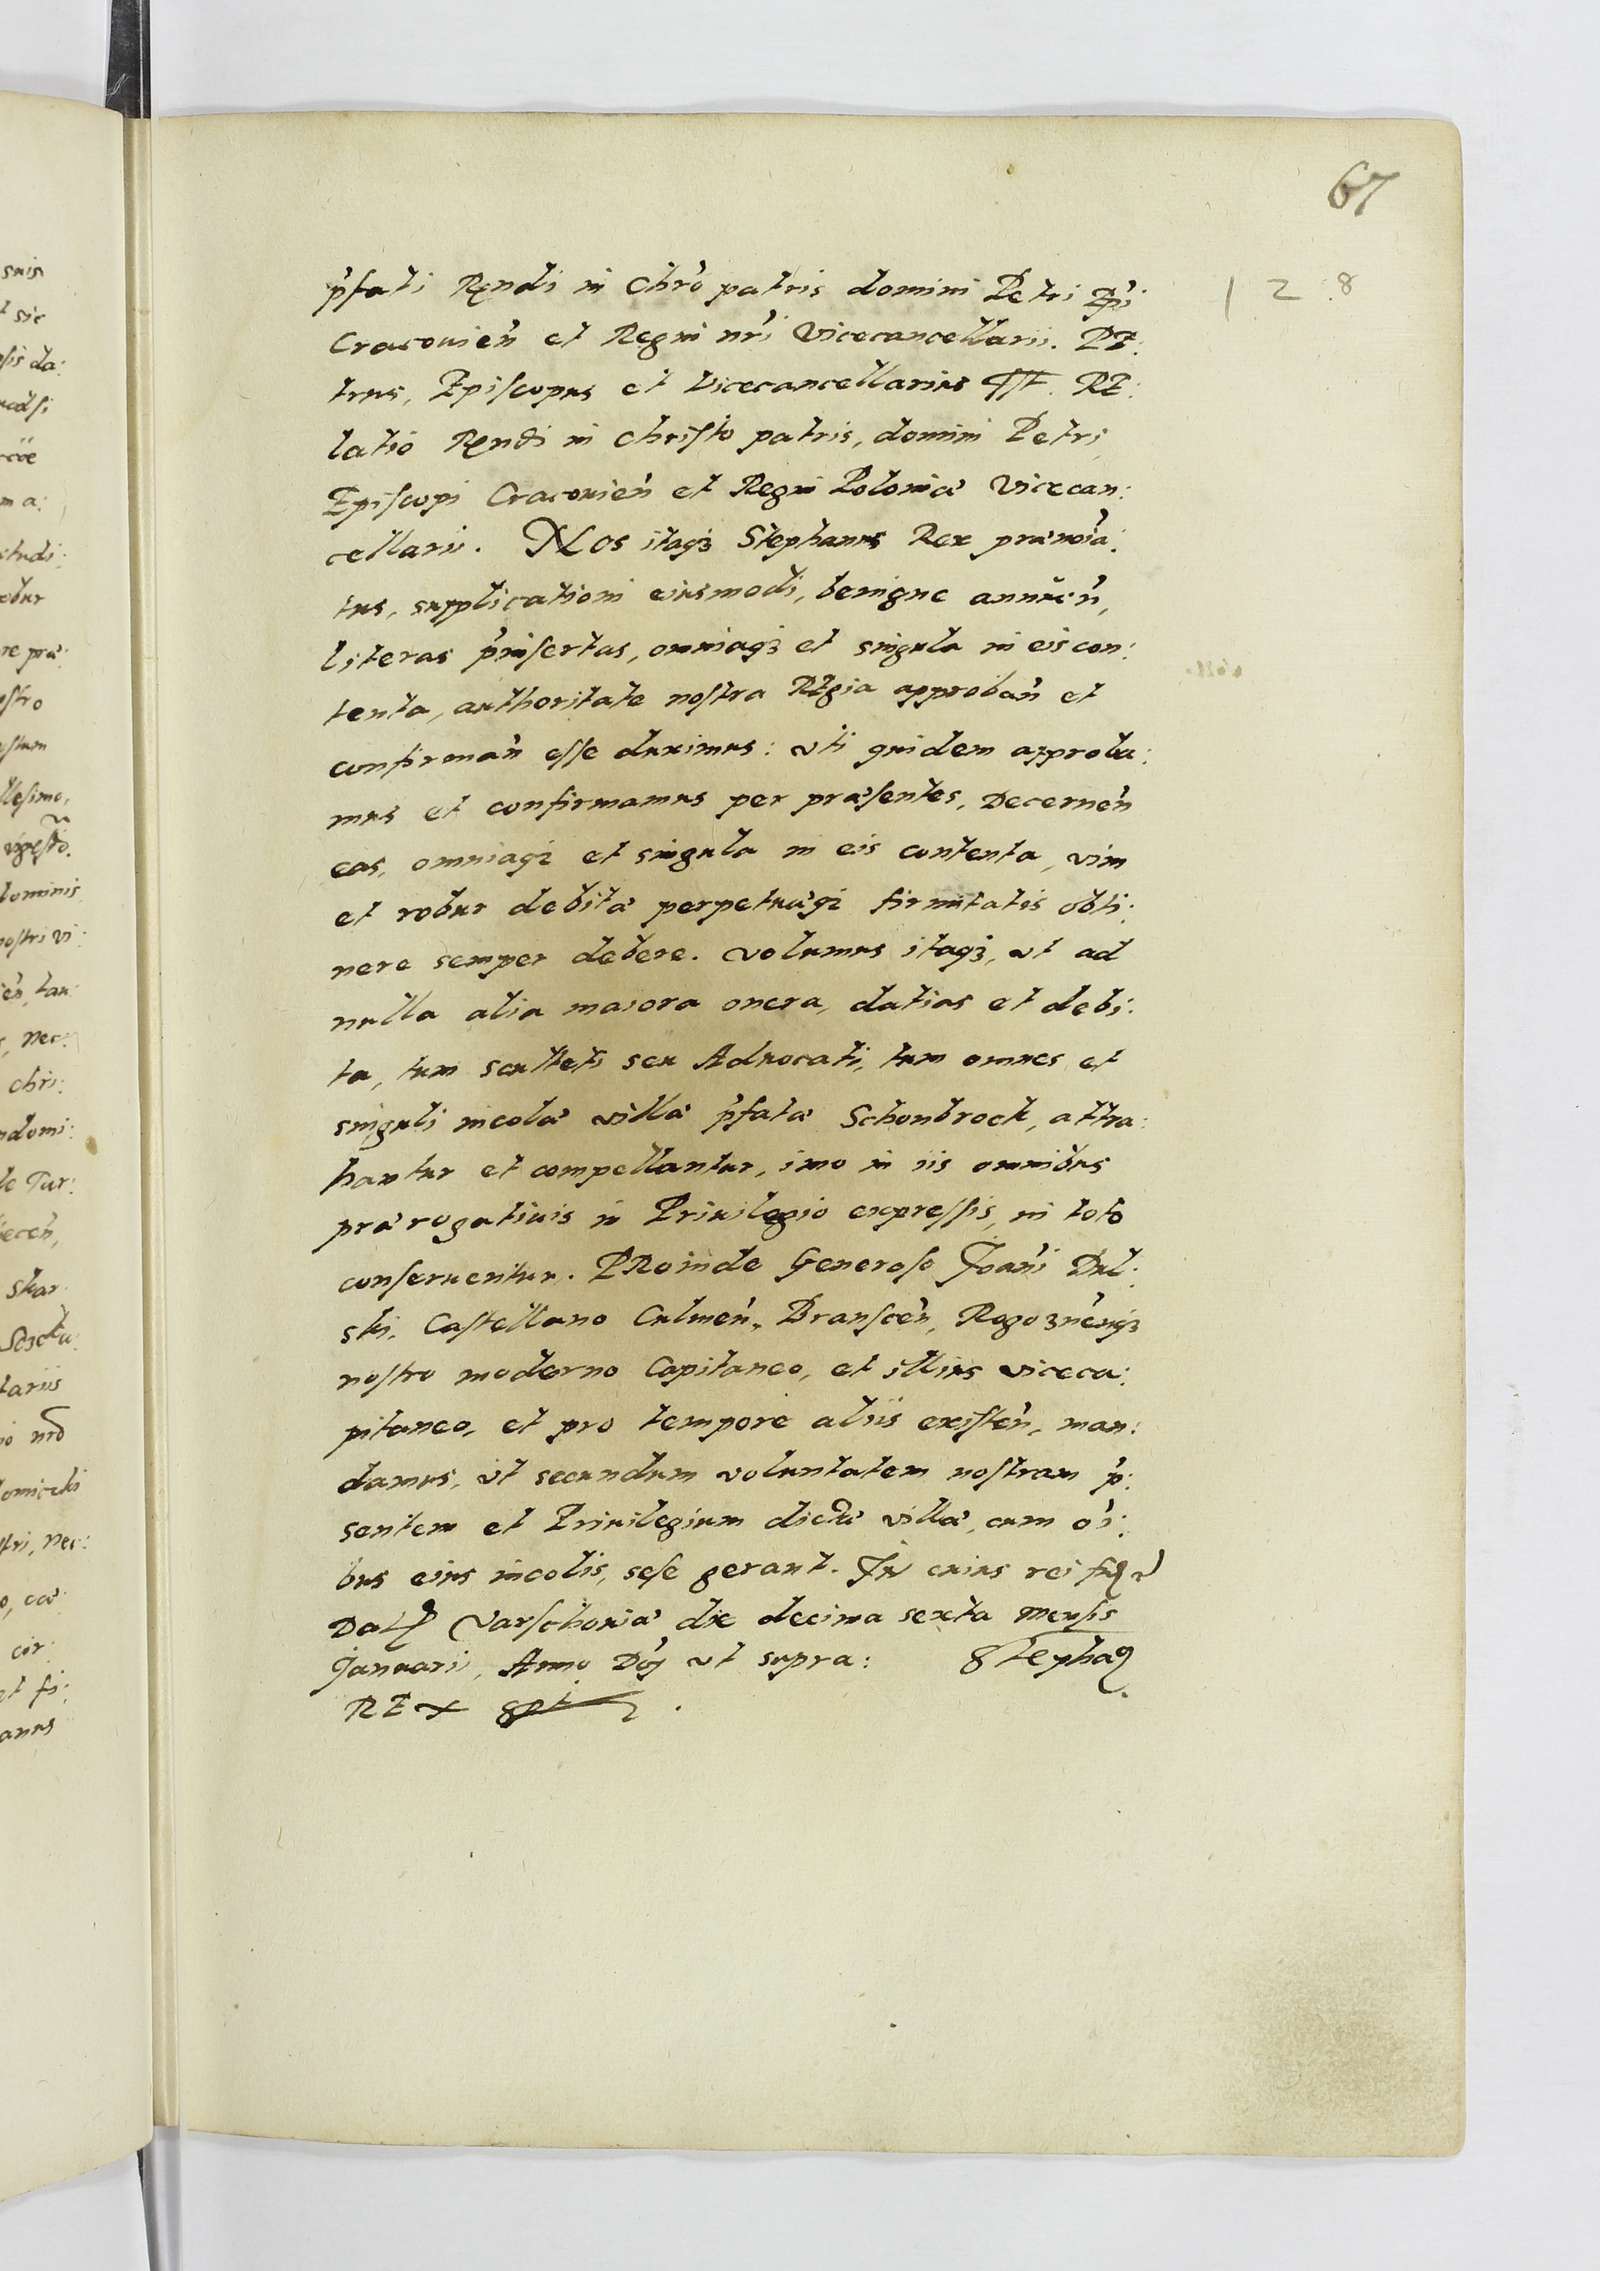 67
128
p̃fati Rndi in Chr̃o patris domini Petri Ep̃i
Cracouieñ et Regni nr̃i Vicecancellarii. PE:
trus, Episcopus et Vicecancellarius sst. RE:
latio Rndi in Christo patris, domini Petri,
Episcopi Cracouieñ et Regni Poloniæ Vicecan:
cellarii. Nos itaqȝ Stephanus Rex prænoĩa:
tus, supplicationi eiusmodi, benigne annueñ,
literas p̃insertas, omniaqȝ et singula in eis con:
tenta, authoritate nostra REgia approbañ et
confirmañ esse duximus: vti quidem approba:
mus et confirmamus per præsentes, Decerneñ
eas, omniaqȝ et singula in eis contenta, vim
et robur debitæ perpetuæqȝ firmitatis obti:
nere semper debere. Volumus itaqȝ, vt ad
nulla alia maiora onera, datias et debi:
ta, tum sculteti seu Aduocati, tum omnes et
singuli incolæ villæ p̃fatæ Schonbrock, attra:
hantur et compellantur, imo in iis omnibus
prærogatiuis in Priuilegio expressis, in toto
conseruentur. PRoinde Generoso Joañi Dul:
ski, Castellano Culmeñ, Bransceñ, Rogoznẽnqȝ
nostro moderno Capitaneo, et illius viceca:
pitaneo, et pro tempore aliis existeñ, man:
damus, vt secundum voluntatem nostram p̃:
sentem et Priuilegium dictæ villæ, cum oĩ:
bus eius incolis, sese gerant. In cuius rei
Dat Varschouiæ die decima sexta mensis
Januarii, Anno Dñi vt supra: Stephaꝰ
REx